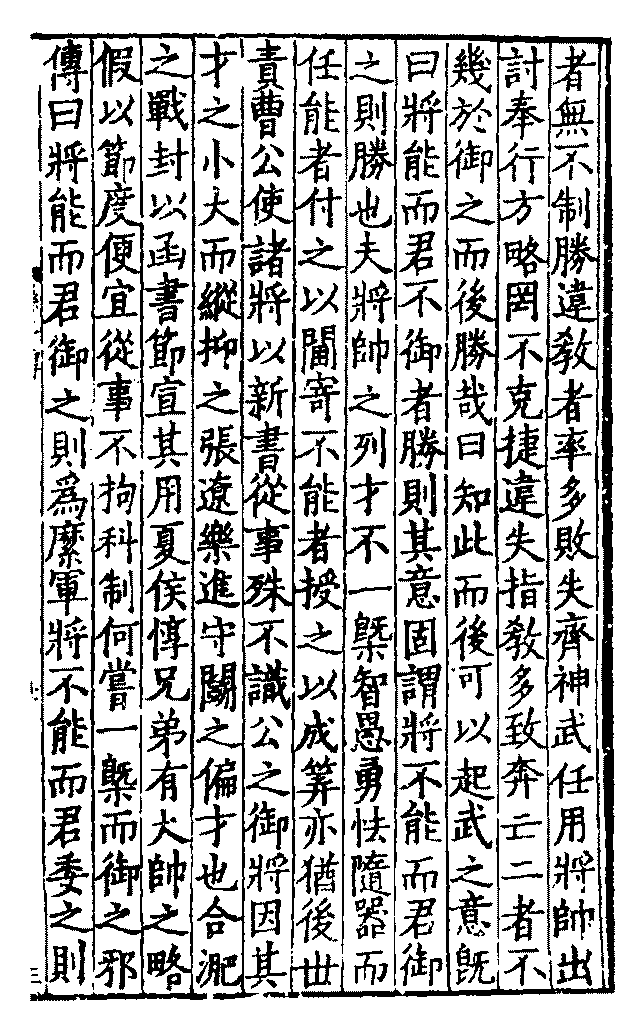 者無不制勝違敎者率多敗失齊神武任用將帥出
討奉行方略罔不克捷違失指敎多致奔亡二者不
幾於御之而後勝哉曰知此而後可以起武之意旣
曰將能而君不御者勝則其意固謂將不能而君御
之則勝也夫將帥之列才不一槩智愚勇怯隨器而
任能者付之以閫寄不能者授之以成筭亦猶後世
責曹公使諸將以新書從事殊不識公之御將因其
才之小大而縱抑之張遼樂進守鬭之偏才也合淝
之戰封以函書節宣其用夏侯惇兄弟有大帥之略
假以節度便宜從事不拘科制何嘗一槩而御之邪
傳曰將能而君御之則爲縻軍將不能而君委之則
三